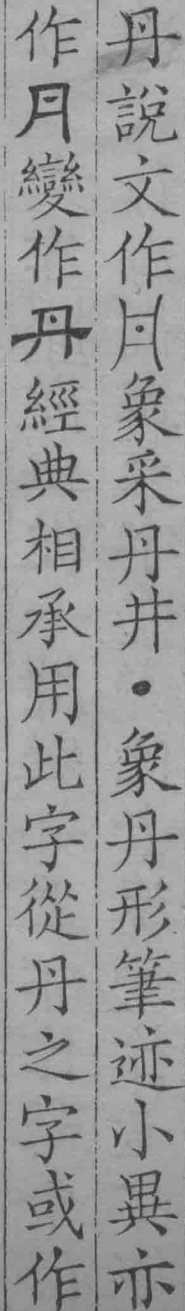 丹說文作𠁿象采丹井•象丹形筆迹小異亦
作⺝變作丹經典相承用此字從丹之字或作